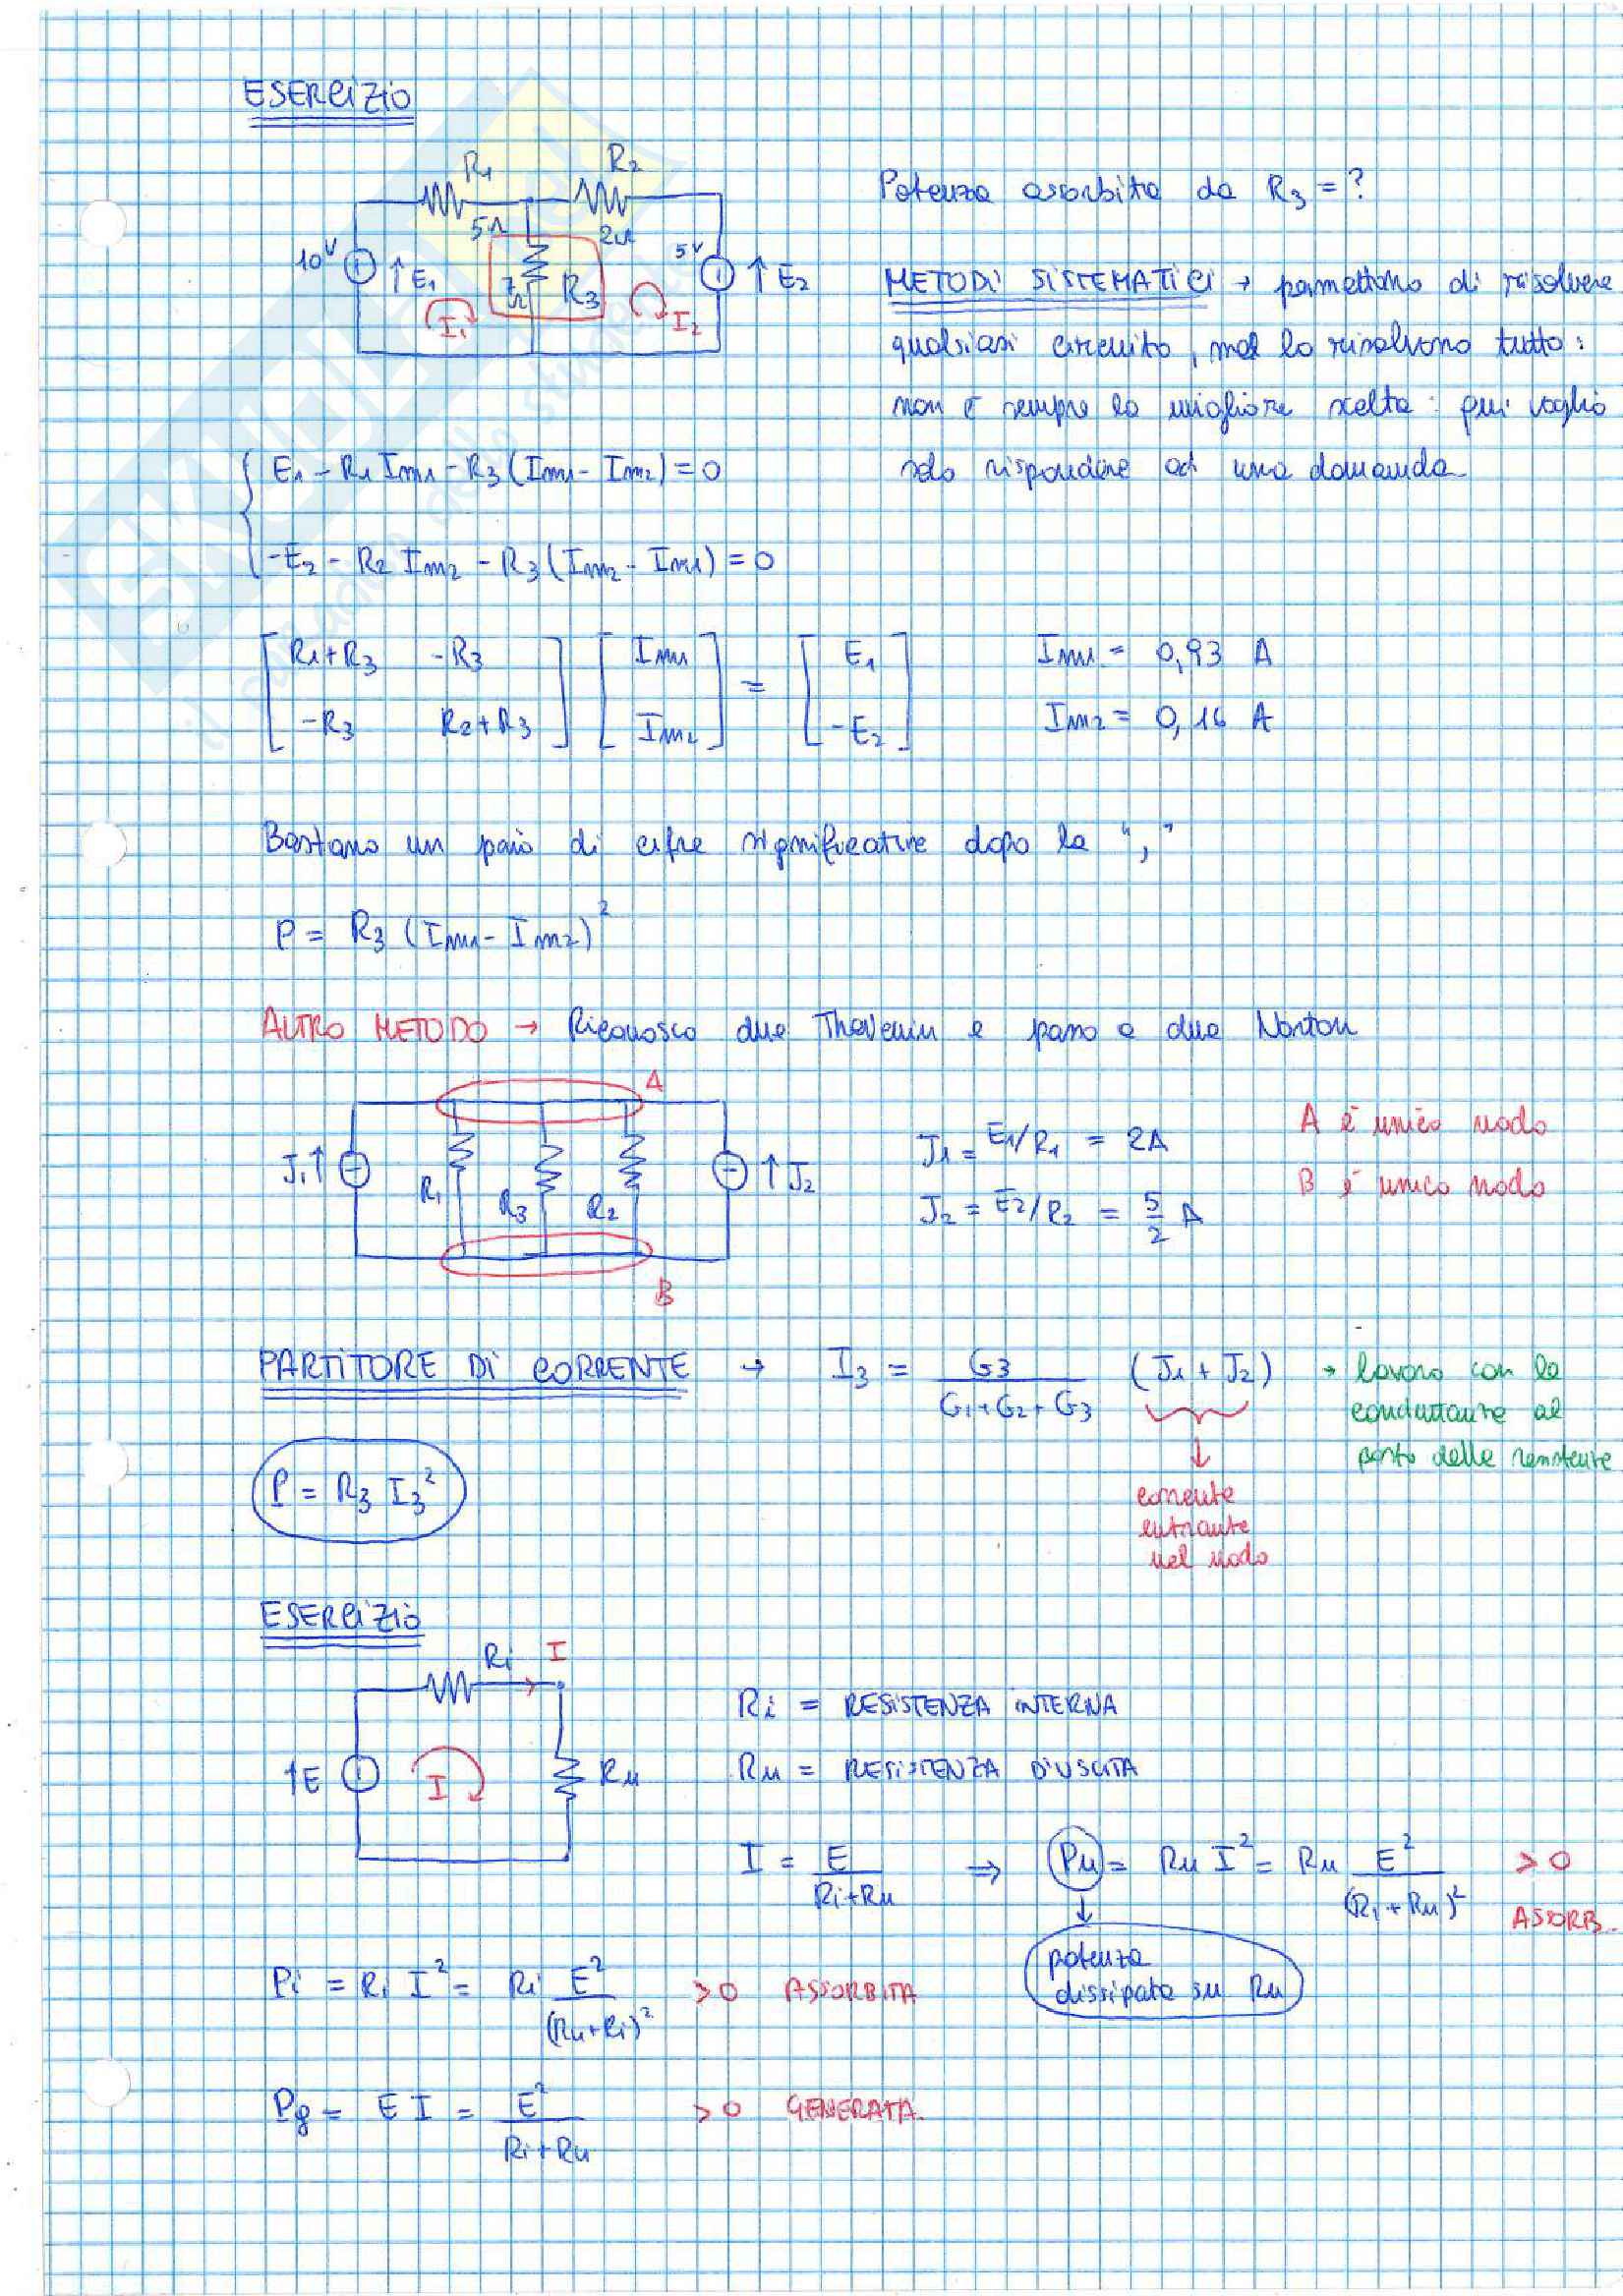 ESERCIZIO
R1 R2
5Ω 2Ω
10V ↑E1 7Ω R3 5V ↑E2
I1 I2
Potenza assorbita da R3 = ?
METODI SISTEMATICI → permettono di risolvere
qualsiasi circuito, ma lo risolvono tutto:
non è sempre la migliore scelta: qui voglio
solo rispondere ad una domanda
E1 - R1 Im1 - R3 (Im1 - Im2) = 0
-E2 - R2 Im2 - R3 (Im2 - Im1) = 0
[R1+R3 -R3] [Im1] = [E1] Im1 = 0,93 A
[-R3 R2+R3] [Im2] [-E2] Im2 = 0,16 A
Bastano un paio di cifre significative dopo la ","
P = R3 (Im1 - Im2)²
ALTRO METODO → Riconosco due Thevenin e passo a due Norton
A
J1↑ R1 R3 R2 ↑J2
B
J1 = E1/R1 = 2A
J2 = E2/R2 = 5/2 A
A è unico nodo
B è unico nodo
PARTITORE DI CORRENTE → I3 = G3/(G1+G2+G3) (J1 + J2)
→ lavoro con le
conduttanze al
posto delle resistenze
↓
corrente
entrante
nel nodo
P = R3 I3²
ESERCIZIO
Ri I
↑E I Ru
Ri = RESISTENZA INTERNA
Ru = RESISTENZA D'USCITA
I = E/(Ri+Ru) ⇒ Pu = Ru I² = Ru E²/(Ri+Ru)² > 0
ASSORB.
↓
potenza
dissipata su Ru
Pi = Ri I² = Ri E²/(Ru+Ri)² > 0 ASSORBITA
Pg = E I = E²/(Ri+Ru) > 0 GENERATA.